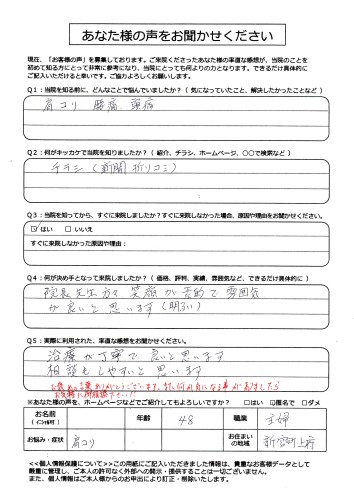 あなた様の声をお聞かせください
現在、「お客様の声」を募集しております。ご来院くださったあなた様の率直な感想が、当院のことを
初めて知る方にとって非常に参考になり、当院にとっても何よりの力となります。できるだけ具体的に
ご記入いただけると幸いです。ご協力よろしくお願いします。
Q1：当院を知る前に、どんなことで悩んでいましたか？（ 気になっていたこと、解決したかったことなど ）
肩コリ 腰痛 頭痛
Q2：何がキッカケで当院を知りましたか？（ 紹介、チラシ、ホームページ、〇〇で検索など ）
チラシ（新聞折りコミ）
Q3：当院を知ってから、すぐに来院しましたか？すぐに来院しなかった場合、原因や理由をお聞かせください。
☑ はい □ いいえ
すぐに来院しなかった原因や理由：
Q4：何が決め手となって来院しましたか？（ 価格、評判、実績、雰囲気など、できるだけ具体的に ）
院長先生方々 笑顔が素的で雰囲気
が良いと思います（明るい）
Q5：実際に利用された、率直な感想をお聞かせください。
治療が丁寧で良いと思います
相談もしやすいと思います
※あなた様の声を、ホームページなどでご紹介してもよろしいですか？ □はい □匿名で □ダメ
お名前
（ｲﾆｼｬﾙ可） 年齢 48 職業 主婦
お悩み・症状 肩コリ お住まい
の地域
<<個人情報保護について>>この用紙にご記入いただきました情報は、貴重なお客様データとして
厳重に管理し、ご本人の許可なく外部への開示・提供することは一切ございません。
また、個人情報はご本人様からのお申出により訂正・削除いたします。